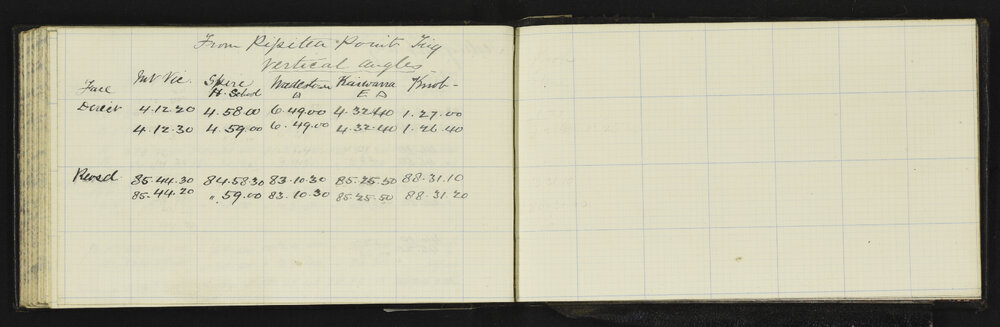 From Pipitea Point Trig
Vertical angles
Face Mt Vic. Spire Wadestown Kaiwarra Knob-
H. School E. D
Direct 4.12.20 4.58.00 6.49.00 4.32.40 1.27.00
4.12.30 4.59.00 6.49.00 4.32.40 1.26.40
Revsd 85.44.30 84.58.30 83.10.30 85.25.50 88.31.10
85.44.20 " 59.00 83.10.30 85.25.50 88.31.20